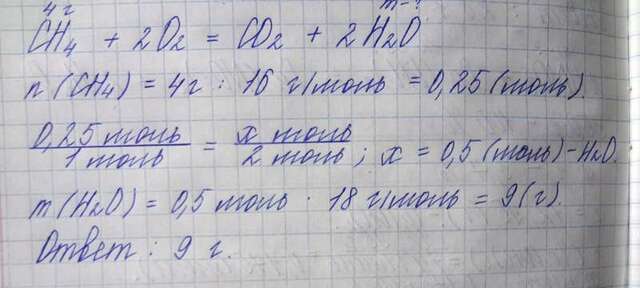 4 г m - ?
CH₄ + 2O₂ = CO₂ + 2H₂O
n (CH₄) = 4 г : 16 г/моль = 0,25 (моль).
0,25 моль / 1 моль = x моль / 2 моль ; x = 0,5 (моль) - H₂O.
m (H₂O) = 0,5 моль · 18 г/моль = 9 (г).
Ответ : 9 г.